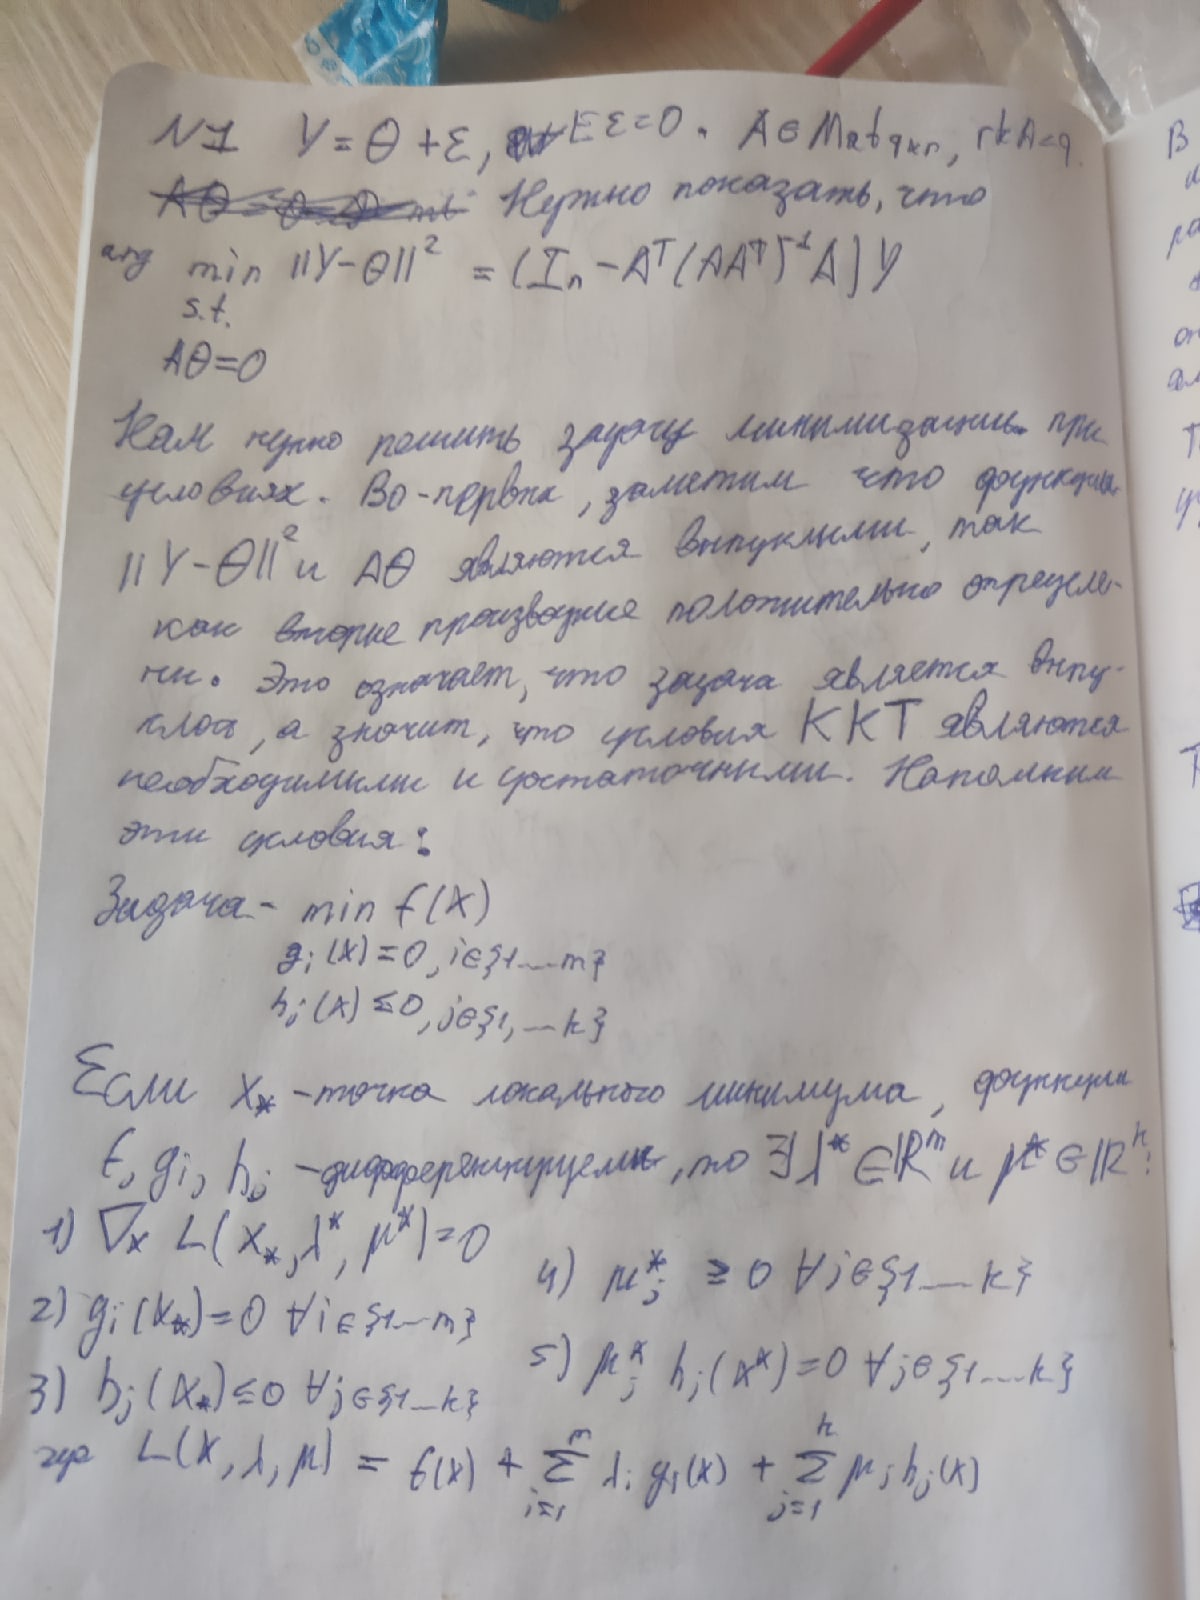 N1 Y = θ + ε, Eε=0. A ∈ Mat q×n, rkA=q.
Нужно показать, что
arg min ||Y-θ||² = (Iₙ - Aᵀ(AAᵀ)⁻¹A)Y
s.t.
Aθ=0
Нам нужно решить задачу минимизации при
условиях. Во-первых, заметим что функции
||Y-θ||² и Aθ являются выпуклыми, так
как вторые производные положительно определе-
ны. Это означает, что задача является выпу-
клой, а значит, что условия KKT являются
необходимыми и достаточными. Напомним
эти условия:
Задача - min f(x)
gᵢ(x)=0, i∈{1...m}
hⱼ(x) ≤0, j∈{1,...k}
Если x* - точка локального минимума, функции
f, gᵢ, hⱼ - дифференцируемы, то ∃ λ* ∈ ℝᵐ и μ* ∈ ℝᵏ:
1) ∇ₓ L(x*, λ*, μ*)=0
2) gᵢ(x*)=0 ∀i∈{1...m}
3) hⱼ(x*)≤0 ∀j∈{1...k}
4) μ*ⱼ ≥ 0 ∀j∈{1...k}
5) μ*ⱼ hⱼ(x*)=0 ∀j∈{1...k}
где L(x, λ, μ) = f(x) + Σᵢ₌₁ᵐ λᵢ gᵢ(x) + Σⱼ₌₁ᵏ μⱼ hⱼ(x)